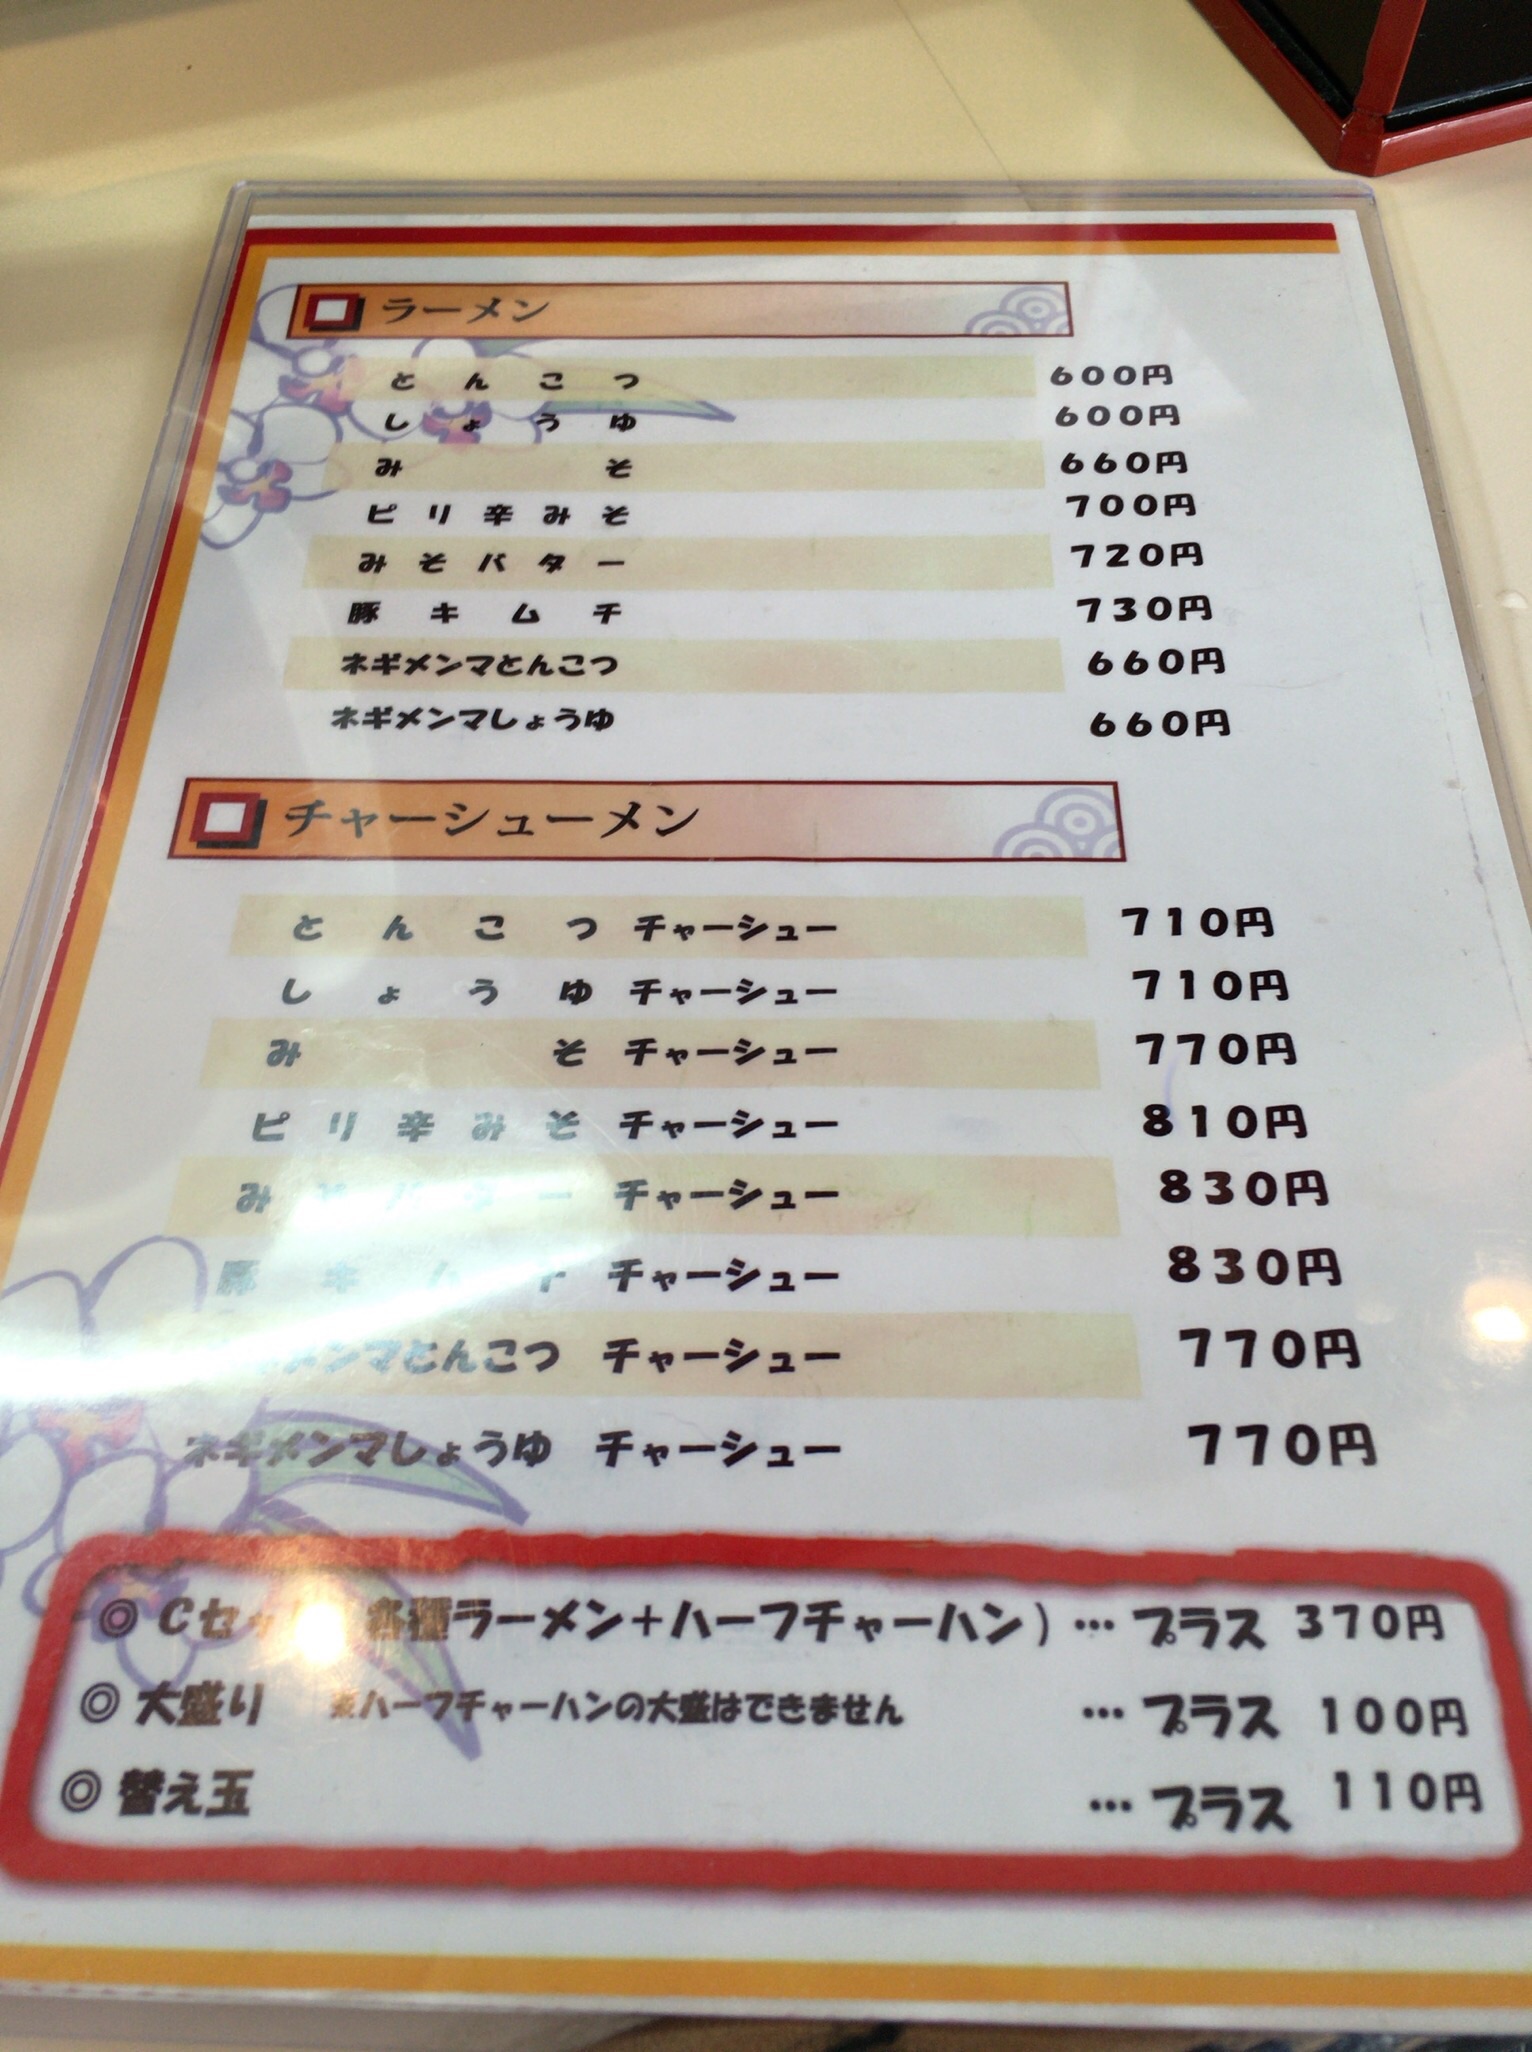 ラーメン
とんこつ 600円
しょうゆ 600円
みそ 660円
ピリ辛みそ 700円
みそバター 720円
豚キムチ 730円
ネギメンマとんこつ 660円
ネギメンマしょうゆ 660円
チャーシューメン
とんこつ チャーシュー 710円
しょうゆ チャーシュー 710円
みそ チャーシュー 770円
ピリ辛みそ チャーシュー 810円
みそバター チャーシュー 830円
豚キムチ チャーシュー 830円
メンマとんこつ チャーシュー 770円
ネギメンマしょうゆ チャーシュー 770円
◎ Cセット 各種ラーメン+ハーフチャーハン) … プラス 370円
◎ 大盛り ※ハーフチャーハンの大盛はできません … プラス 100円
◎ 替え玉 … プラス 110円